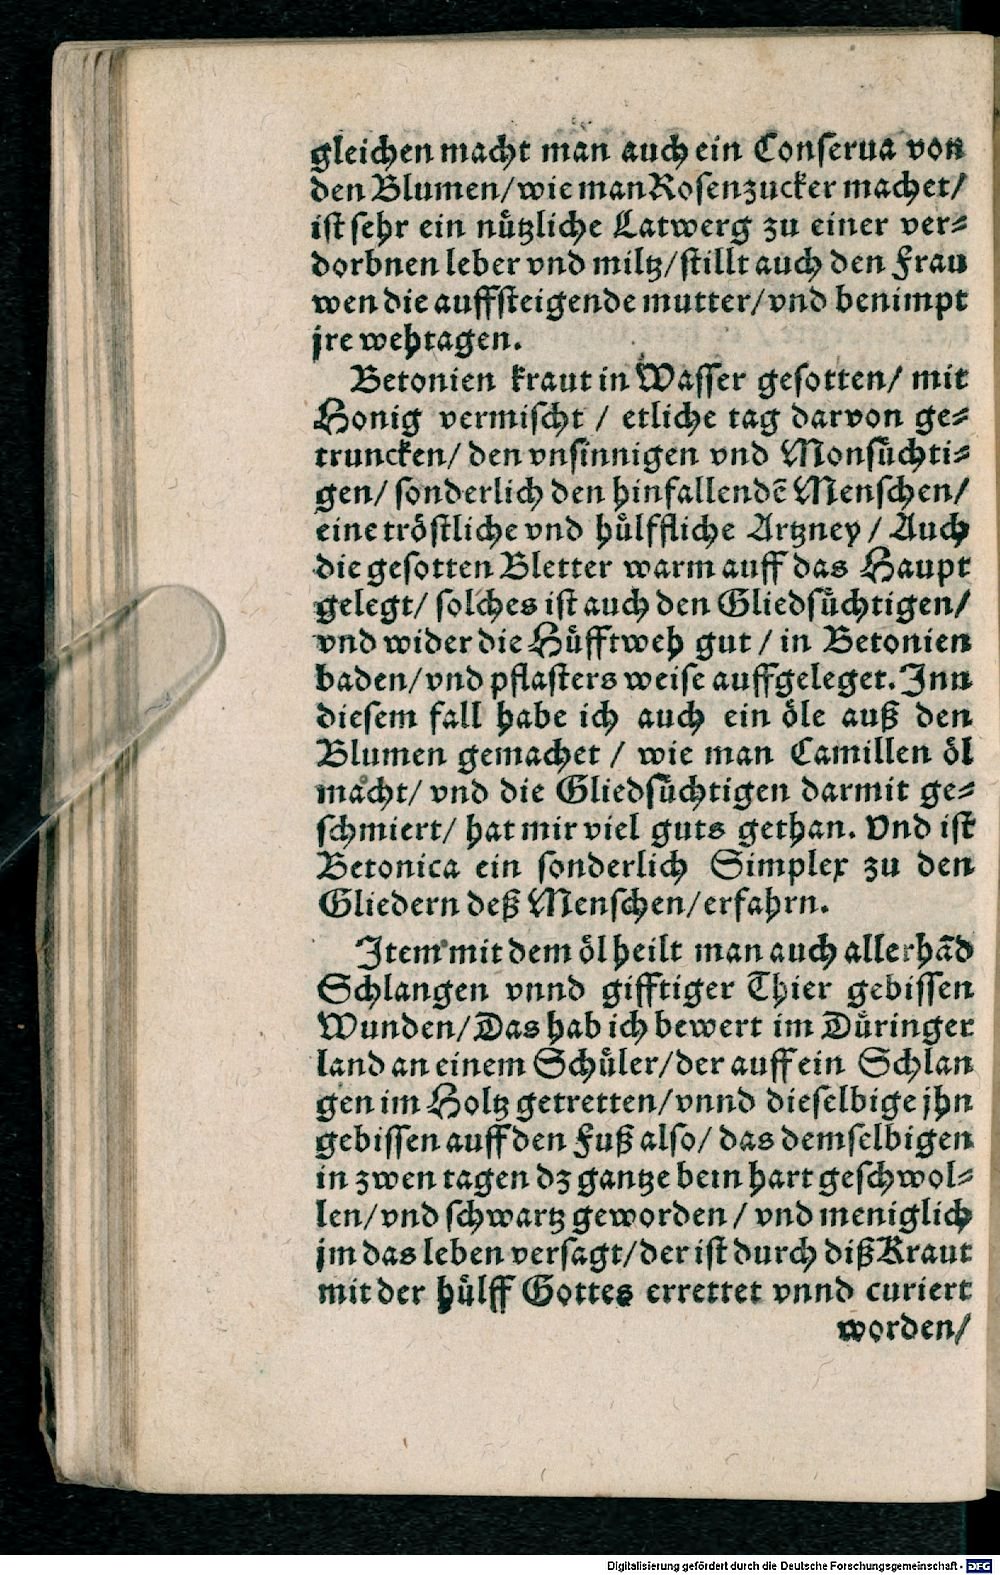 gleichen macht man auch ein Conserua von
den Blumen/ wie man Rosenzucker machet/
ist sehr ein nützliche Latwerg zu einer ver-
dorbnen leber vnd miltz/ stillt auch den Frau
wen die auffsteigende mutter/ vnd benimpt
jre wehtagen.
Betonien kraut in Wasser gesotten/ mit
Honig vermischt / etliche tag darvon ge-
truncken/ den vnsinnigen vnd Monsüchti-
gen/ sonderlich den hinfallendē Menschen/
eine tröstliche vnd hülffliche Artzney / Auch
die gesotten Bletter warm auff das Haupt
gelegt/ solches ist auch den Gliedsüchtigen/
vnd wider die Hüfftweh gut / in Betonien
baden/ vnd pflasters weise auffgeleget. Inn
diesem fall habe ich auch ein öle auß den
Blumen gemachet / wie man Camillen öl
macht/ vnd die Gliedsüchtigen darmit ge-
schmiert/ hat mir viel guts gethan. Vnd ist
Betonica ein sonderlich Simplex zu den
Gliedern deß Menschen/ erfahrn.
Item mit dem öl heilt man auch allerhād
Schlangen vnnd gifftiger Thier gebissen
Wunden/ Das hab ich bewert im Düringer
land an einem Schüler/ der auff ein Schlan
gen im Holtz getretten/ vnnd dieselbige jhn
gebissen auff den Fuß also/ das demselbigen
in zwen tagen dz gantze bein hart geschwol-
len/ vnd schwartz geworden / vnd meniglich
jm das leben versagt/ der ist durch diß Kraut
mit der hülff Gottes errettet vnnd curiert
worden/
Digitalisierung gefördert durch die Deutsche Forschungsgemeinschaft - DFG